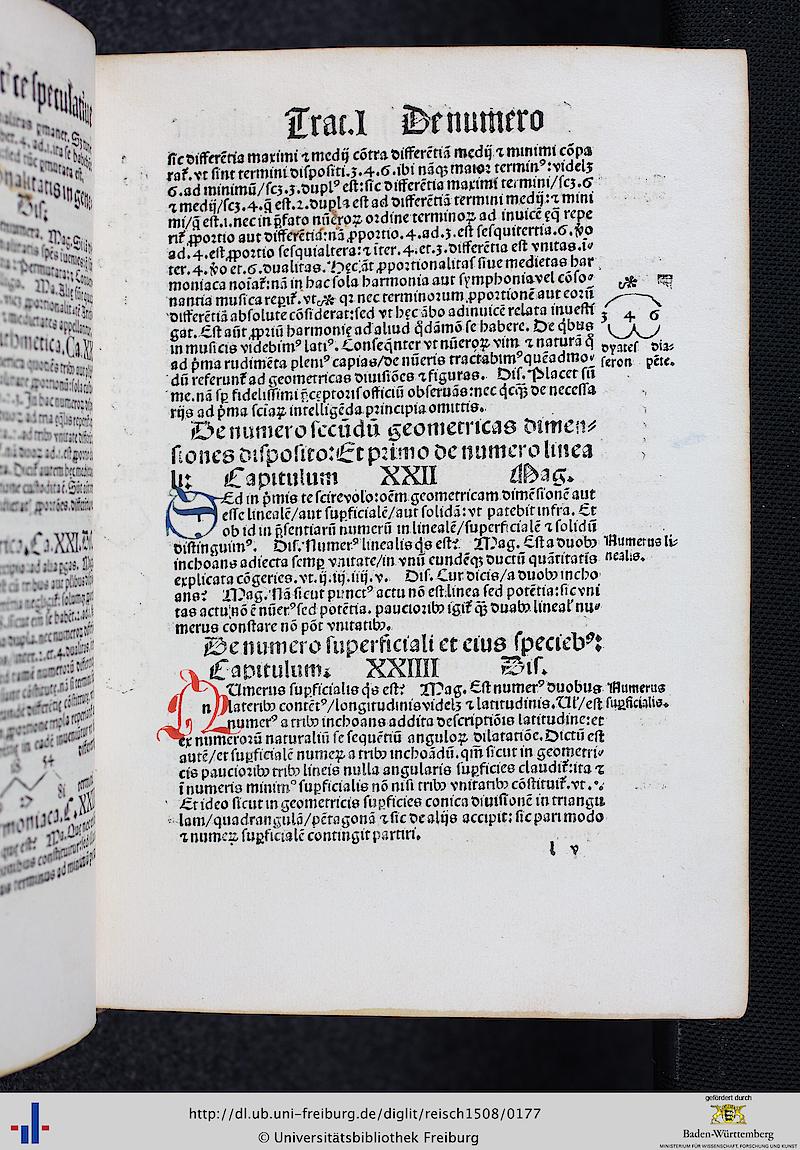 Trac.I De numero
sic differētia maximi ⁊ medij cōtra differētiā medij ⁊ minimi cōpa
rat᷒. vt sint termini dispositi.3.4.6. ibi nāqꝫ maior terminꝰ: videlꝫ
6.ad minimū/scꝫ.3.duplꝰ est:sic differētia maximi termini/scꝫ.6
⁊ medij/scꝫ.4.q̄ est.2.dupla est ad differētiā termini medij:⁊ mini
mi/q̄ est.1.nec in p̄fato nūeroꝝ ordine terminoꝝ ad inuicē eq̄ repe
rit᷒ ꝓportio aut differētia:nā ꝓportio.4.ad.3.est sesquitertia.6.ꝟo
ad.4.est ꝓportio sesquialtera:⁊ īter.4.et.3.differētia est vnitas.i-
ter.4.ꝟo et.6.dualitas. Hec āt ꝓportionalitas siue medietas har
moniaca noīat᷒:nā in hac sola harmonia aut symphonia vel cōso-
nantia musica reperit᷒. vt ※ qꝛ nec terminorum ꝓportionē aut eorū
differētiā absolute cōsiderat:sed vt hec ābo adinuicē relata inuesti
gat. Est aūt ꝓpriū harmonie ad aliud q̄dāmō se habere. De qꝰbus
in musicis videbimꝰ latiꝰ. Conseqnter vt nūeroꝝ vim ⁊ naturā q̄
ad p̄ma rudimēta pleniꝰ capias/de nūeris tractabimꝰ quēadmo-
dū referunt᷒ ad geometricas diuisiōes ⁊ figuras. Dis. Placet sū
me.nā sꝑ fidelissimi p̄ceptoris officiū obseruās:nec qcqꝫ de necessa
rijs ad p̄ma sciaꝝ intelligēda principia omittis.
3 4 6
dyates dia-
seron pēte.
De numero secūdū geometricas dimen-
siones disposito:Et primo de numero linea
li: Capitulum XXII Mag.
SEd in p̄mis te scire volo:oēm geometricam dimēsionē aut
esse linealē/aut suꝑficialē/aut solidā:vt patebit infra. Et
ob id in p̄sentiarū numerū in linealē/superficialē ⁊ solidū
distinguimꝰ. Dis. Numerꝰ linealis qs est? Mag. Est a duobꝰ
inchoans adiecta semꝑ vnitate/in vnū eundēqꝫ ductū quātitatis
explicata cōgeries. vt.ij.iij.iiij.v. Dis. Cur dicis/a duobꝰ incho
ans? Mag. Nā sicut punctꝰ actu nō est linea sed potētia:sic vni
tas actu nō ē nūerꝰ sed potētia. pauciorībꝰ igit᷒ qꝫ duabꝰ linealꝰ nu-
merus constare nō pōt vnitatibꝰ.
Numerus li-
nealis.
De numero superficiali et eius speciebꝰ:
Capitulum. XXIIII Dis.
NUmerus suꝑficialis qs est? Mag. Est numerꝰ duobus
n lateribꝰ contētꝰ/longitudinis videlꝫ ⁊ latitudinis. Ul'/est
numerꝰ a tribꝰ inchoans addita descriptiōis latitudine:et
ex numerorū naturaliū se sequētiū anguloꝝ dilatatiōe. Dictū est
autē/et suꝑficialē numeꝝ a tribꝰ inchoādū. qm̄ sicut in geometri-
cis pauciorībꝰ tribꝰ lineis nulla angularis suꝑficies claudit᷒:ita ⁊
ī numeris minimꝰ suꝑficialis nō nisi tribꝰ vnitatibꝰ cōstituit᷒. vt.∵
Et ideo sicut in geometricis suꝑficies conica diuisionē in triangu
lam/quadrangulā/pētagonā ⁊ sic de alijs accipit: sic pari modo
⁊ numeꝝ suꝑficialē contingit partiri.
Numerus
suꝑficialis.
l v
http://dl.ub.uni-freiburg.de/diglit/reisch1508/0177
© Universitätsbibliothek Freiburg
gefördert durch
Baden-Württemberg
MINISTERIUM FÜR WISSENSCHAFT, FORSCHUNG UND KUNST